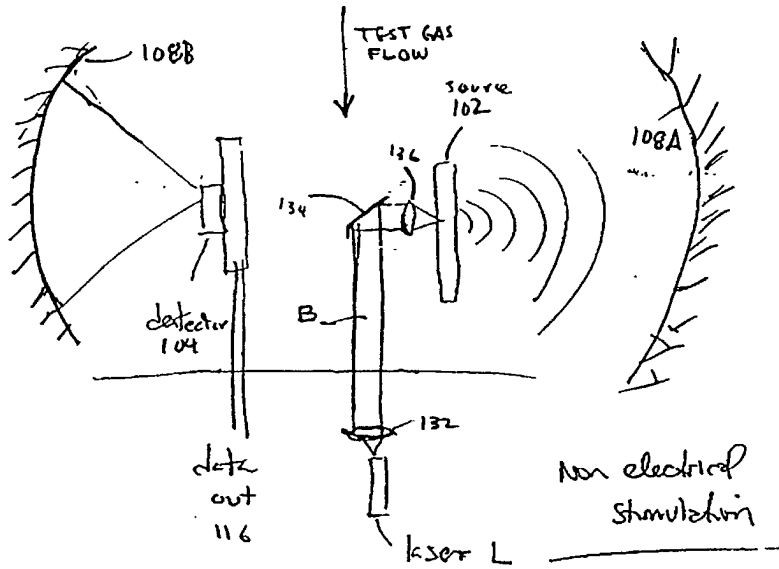 108B
TEST GAS
FLOW
source
102
108A
136
134
B
detector
104
132
data
out
116
laser L
Non electrical
stimulation